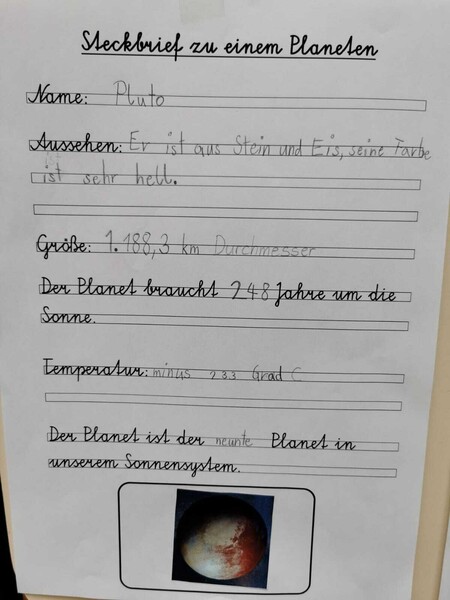 Steckbrief zu einem Planeten
Name: Pluto
Aussehen: Er ist aus Stein und Eis, seine Farbe
ist sehr hell.
Größe: 1.188,3 km Durchmesser
Der Planet braucht 248 Jahre um die
Sonne.
Temperatur: minus 233 Grad C
Der Planet ist der neunte Planet in
unserem Sonnensystem.